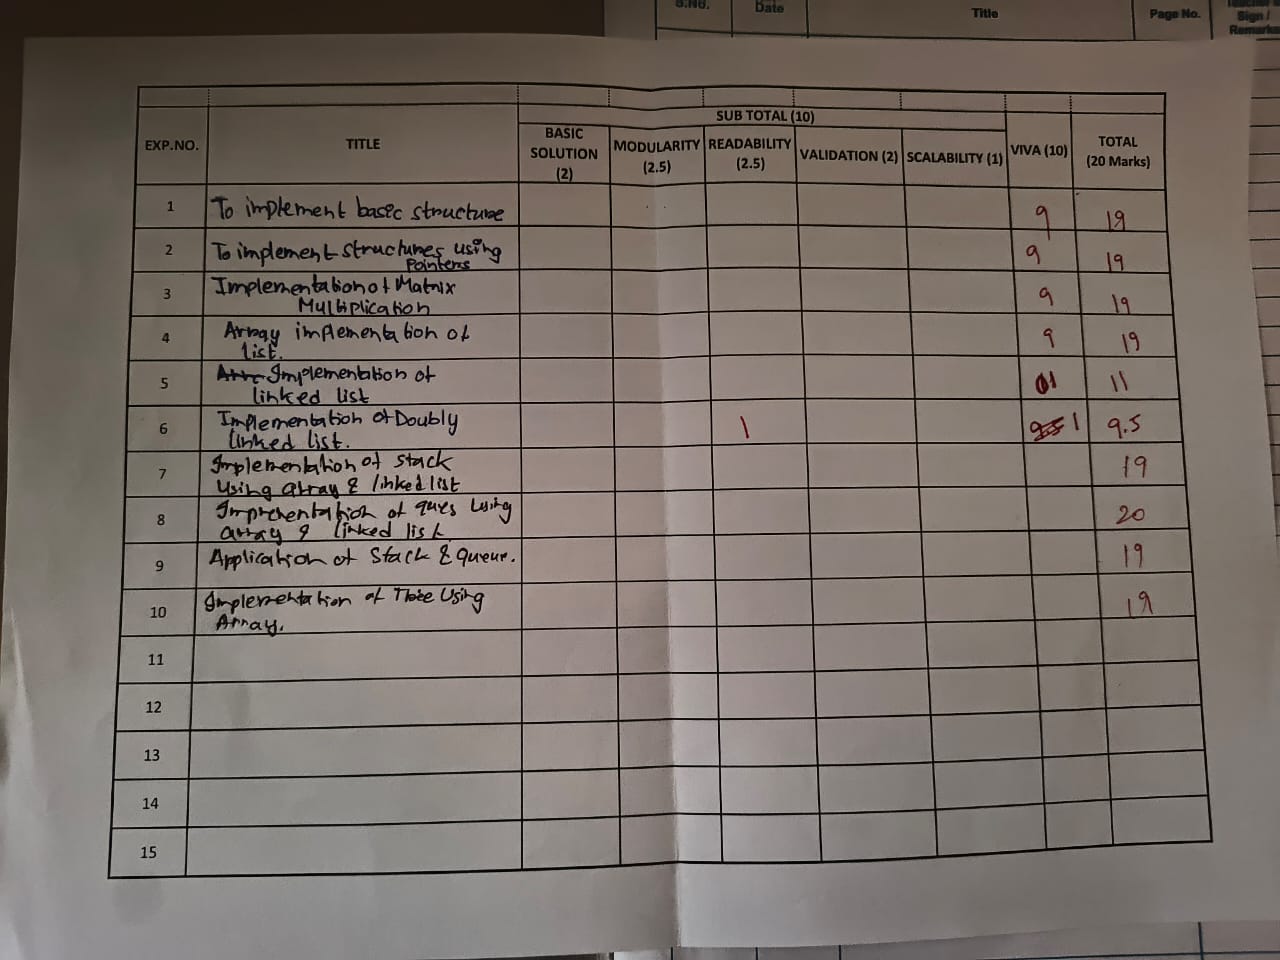 S.No.
Date
Title
Page No.
Sign /
Remarks
EXP.NO.
TITLE
SUB TOTAL (10)
BASIC
SOLUTION
(2)
MODULARITY
(2.5)
READABILITY
(2.5)
VALIDATION (2)
SCALABILITY (1)
VIVA (10)
TOTAL
(20 Marks)
1 To implement basic structure 9 19
2 To implement structures using
Pointers 9 19
3 Implementation of Matrix
Multiplication 9 19
4 Array implementation of
list. 9 19
5 Implementation of
linked list 01 11
6 Implementation of Doubly
linked list. 1 1 9.5
7 Implementation of Stack
Using array & linked list 19
8 of Using
array & linked list 20
9 Application of Stack & Queue. 19
10 Implementation of Using
Array. 19
11
12
13
14
15